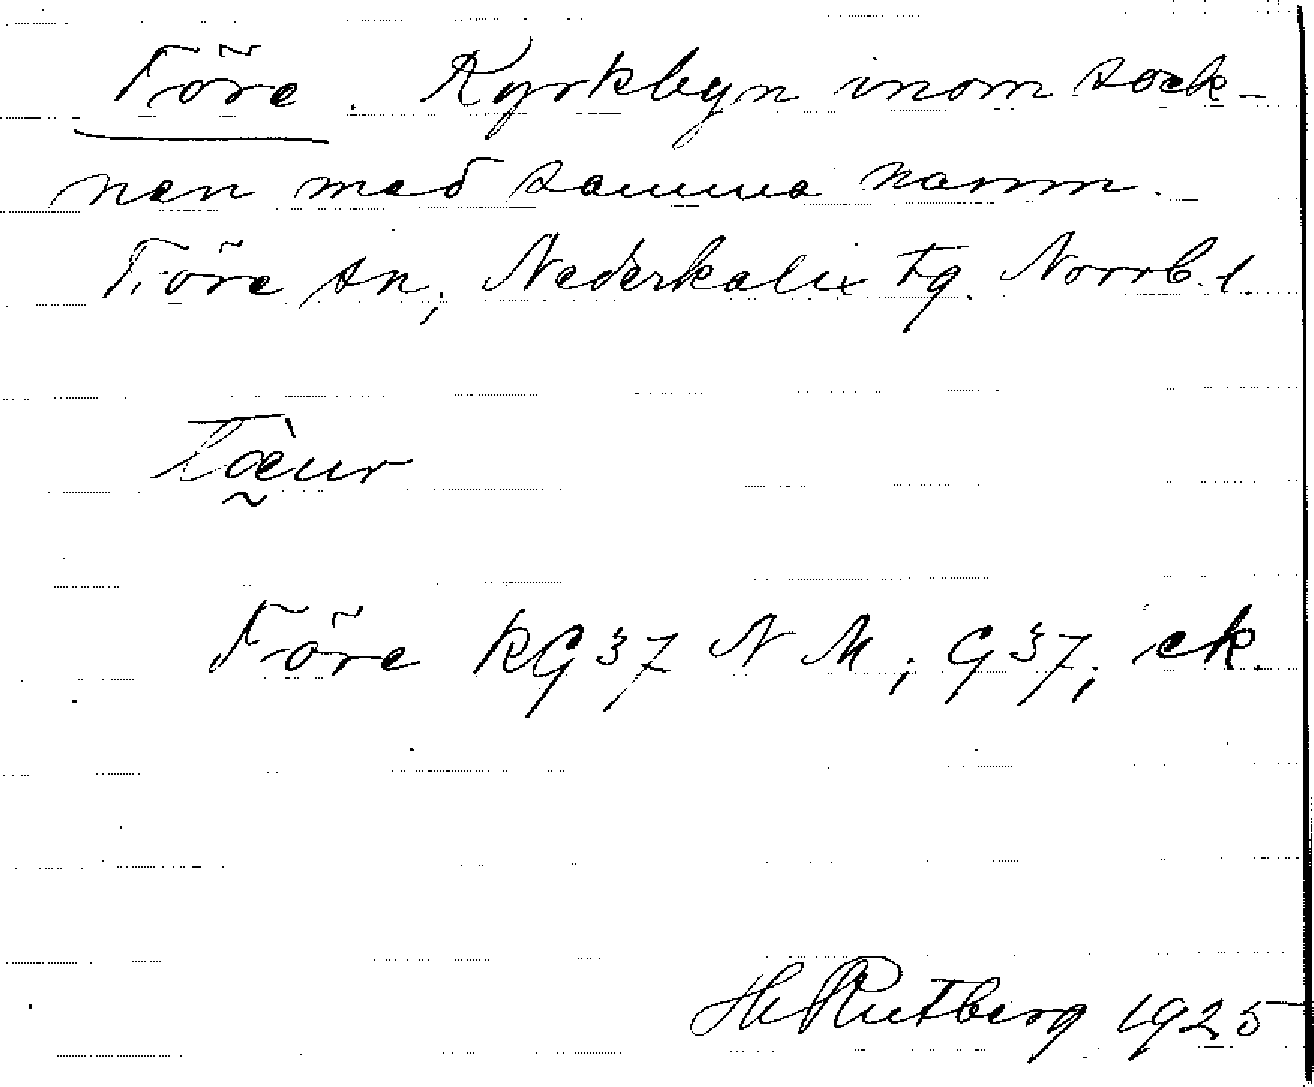 Töre. Kyrkbyn inom sock-
nen med samma namn.
Töre sn, Nederkalix tg. Norrb. l.
Töre KG 37 NM; G 37; ek.
H Rutberg 1925